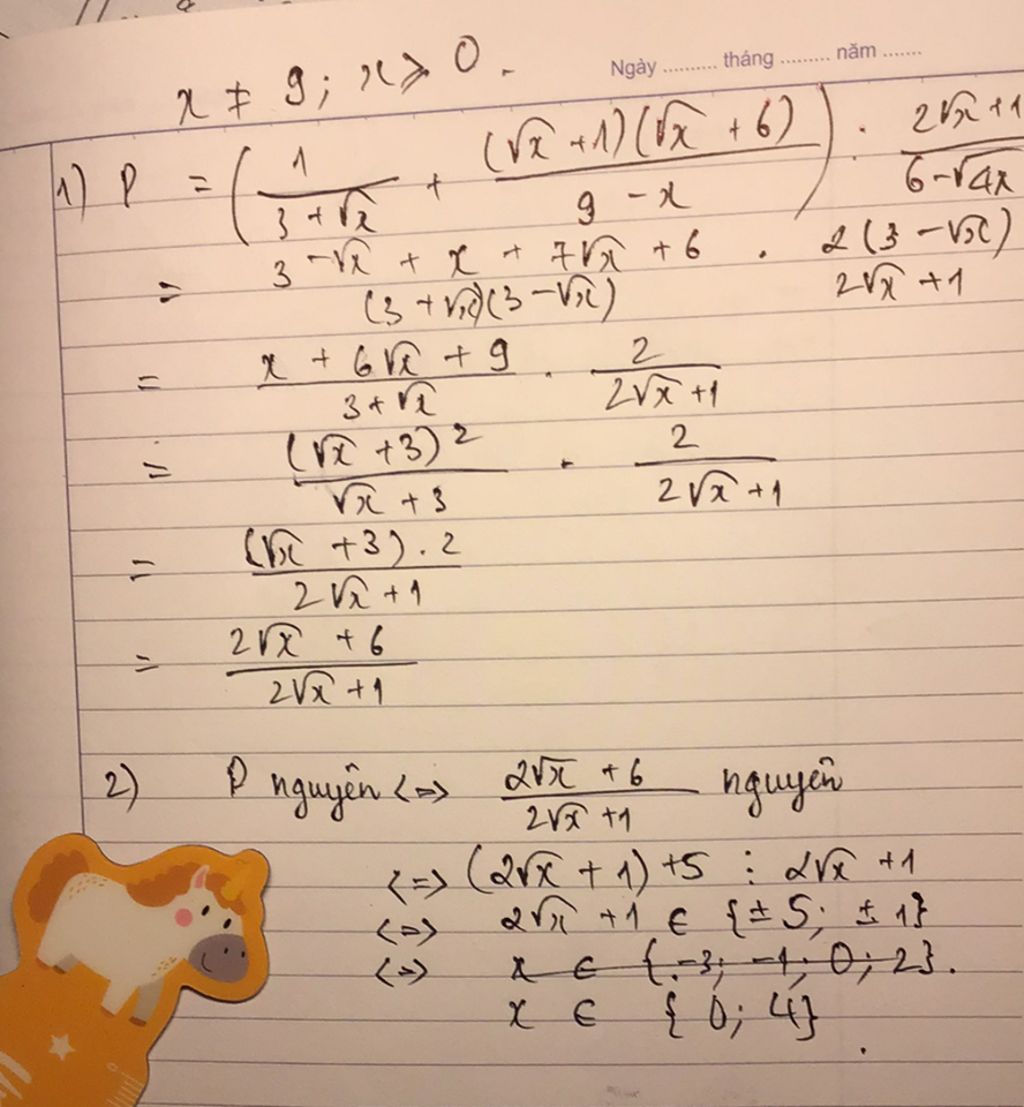 Ngày .......... tháng ......... năm .......
x ≠ 9; x ≥ 0.
1) P = (1/(3 + √x) + (√x + 1)(√x + 6)/(9 - x)) : (2√x + 1)/(6 - √4x)
= (3 - √x + x + 7√x + 6)/((3 + √x)(3 - √x)) . 2(3 - √x)/(2√x + 1)
= (x + 6√x + 9)/(3 + √x) . 2/(2√x + 1)
= (√x + 3)²/(√x + 3) . 2/(2√x + 1)
= (√x + 3) . 2/(2√x + 1)
= (2√x + 6)/(2√x + 1)
2) P nguyên <=> (2√x + 6)/(2√x + 1) nguyên
<=> (2√x + 1) + 5 ⋮ 2√x + 1
<=> 2√x + 1 ∈ {± 5; ± 1}
<=> x ∈ {-3; -1; 0; 2}.
x ∈ {0; 4}